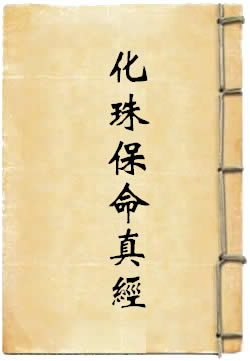 化珠保命真經